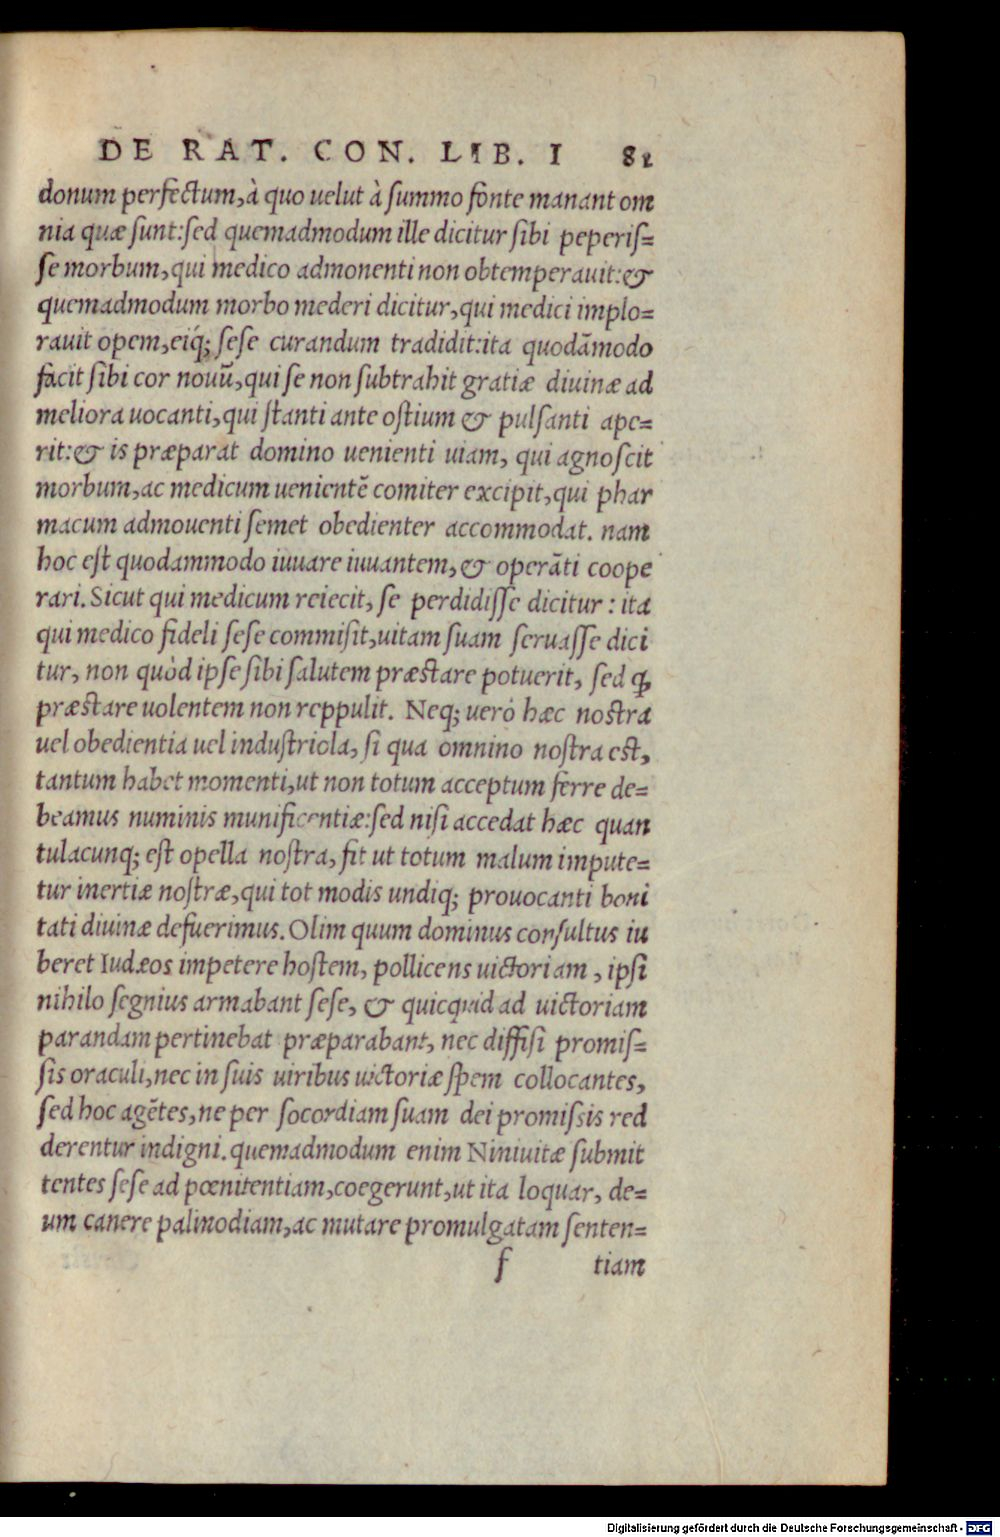 DE RAT. CON. LIB. I 81
donum perfectum, à quo uelut à summo fonte manant om
nia quæ sunt: sed quemadmodum ille dicitur sibi peperis=
se morbum, qui medico admonenti non obtemperauit: &
quemadmodum morbo mederi dicitur, qui medici implo=
rauit opem, eiq́; sese curandum tradidit: ita quodāmodo
facit sibi cor nouū, qui se non subtrahit gratiæ diuinæ ad
meliora uocanti, qui stanti ante ostium & pulsanti ape=
rit: & is præparat domino uenienti uiam, qui agnoscit
morbum, ac medicum uenientē comiter excipit, qui phar
macum admouenti semet obedienter accommodat. nam
hoc est quodammodo iuuare iuuantem, & operāti coope
rari. Sicut qui medicum reiecit, se perdidisse dicitur: ita
qui medico fideli sese commisit, uitam suam seruasse dici
tur, non quòd ipse sibi salutem præstare potuerit, sed ꝙ
præstare uolentem non reppulit. Neq; uerò hæc nostra
uel obedientia uel industriola, si qua omnino nostra est,
tantum habet momenti, ut non totum acceptum ferre de=
beamus numinis munificentiæ: sed nisi accedat hæc quan
tulacunq; est opella nostra, fit ut totum malum impute=
tur inertiæ nostræ, qui tot modis undiq; prouocanti boni
tati diuinæ defuerimus. Olim quum dominus consultus iu
beret Iudæos impetere hostem, pollicens uictoriam, ipsi
nihilo segnius armabant sese, & quicquid ad uictoriam
parandam pertinebat præparabant, nec diffisi promis=
sis oraculi, nec in suis uiribus uictoriæ spem collocantes,
sed hoc agētes, ne per socordiam suam dei promissis red
derentur indigni. quemadmodum enim Niniuitæ submit
tentes sese ad pœnitentiam, coegerunt, ut ita loquar, de=
um canere palinodiam, ac mutare promulgatam senten=
f tiam
Digitalisierung gefördert durch die Deutsche Forschungsgemeinschaft - DFG